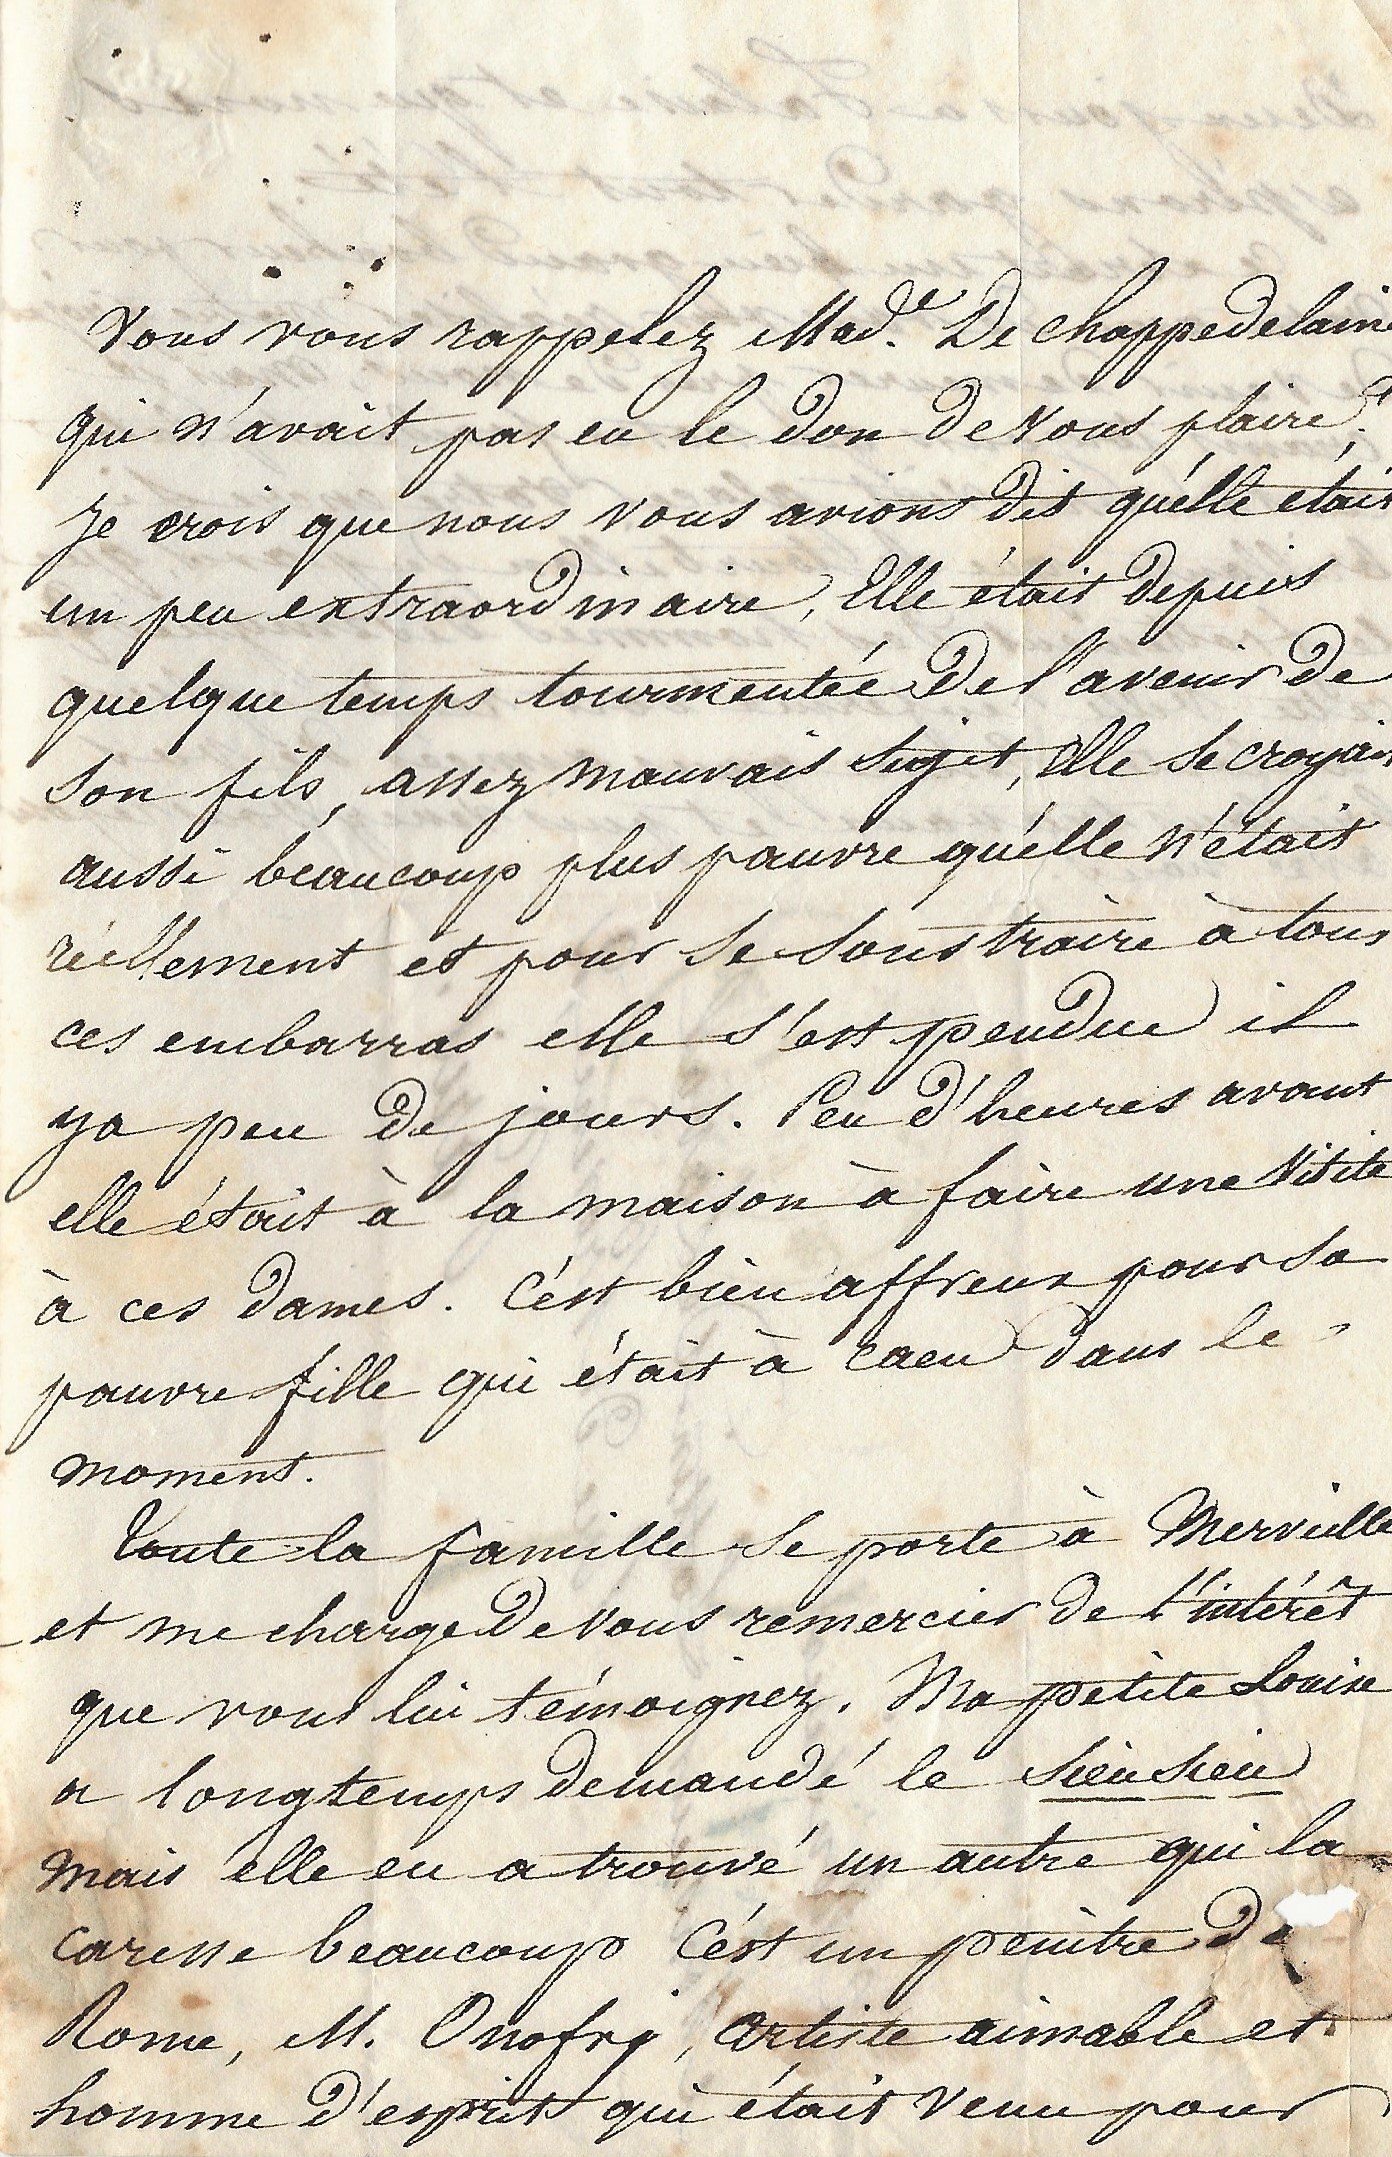 Vous vous rappelez Mad.e De Chappedelaine
qui n'avait pas eu le don de vous plaire.
Je crois que nous vous avions dit qu'elle était
un peu extraordinaire, Elle était depuis
quelque temps tourmentée de l'avenir de
son fils, assez mauvais sujet, Elle se croyait
aussi beaucoup plus pauvre qu'elle n'était
réellement et pour se soustraire à tous
ces embarras elle s'est pendue il
ya peu de jours. Peu d'heures avant
elle était à la maison à faire une visite
à ces dames. C'est bien affreux pour sa
pauvre fille qui était à Caen dans le
moment.
Toute la famille se porte à Merveille
et me charge de vous remercier de l'intérêt
que vous lui témoignez. Ma petite Louise
a longtemps demandé le sieu sieu
mais elle en a trouvé un autre qui la
caresse beaucoup C'est un peintre de
Rome, M. Onofrj, artiste aimable et
homme d'esprit qui était venu pour